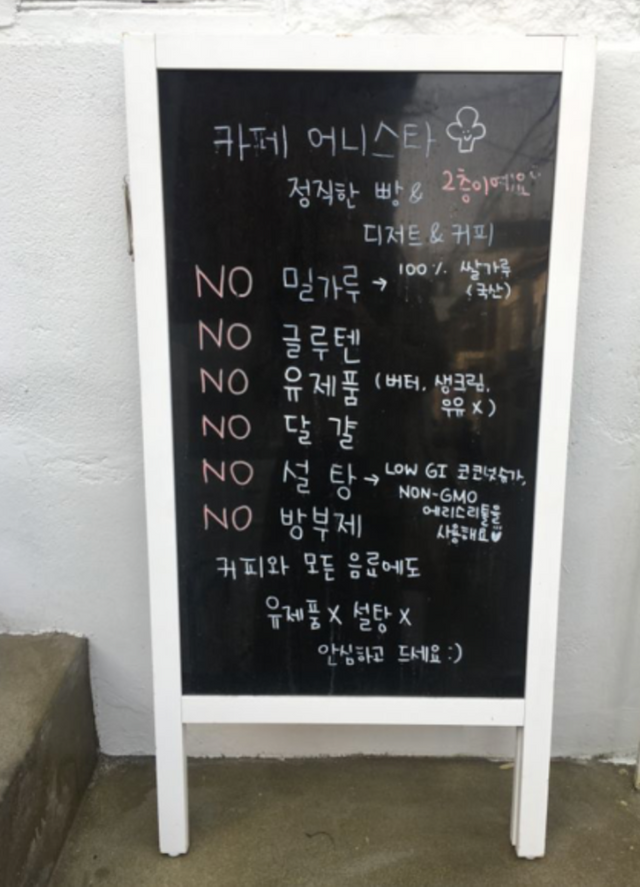 카페 어니스타
정직한 빵 & 2층이예요~
디저트 & 커피
NO 밀가루 → 100% 쌀가루
(국산)
NO 글루텐
NO 유제품 (버터, 생크림,
우유 X)
NO 달걀
NO 설탕 → LOW GI 코코넛슈가,
NON-GMO
에리스리톨을
사용해요♥
NO 방부제
커피와 모든 음료에도
유제품 X 설탕 X
안심하고 드세요 :)